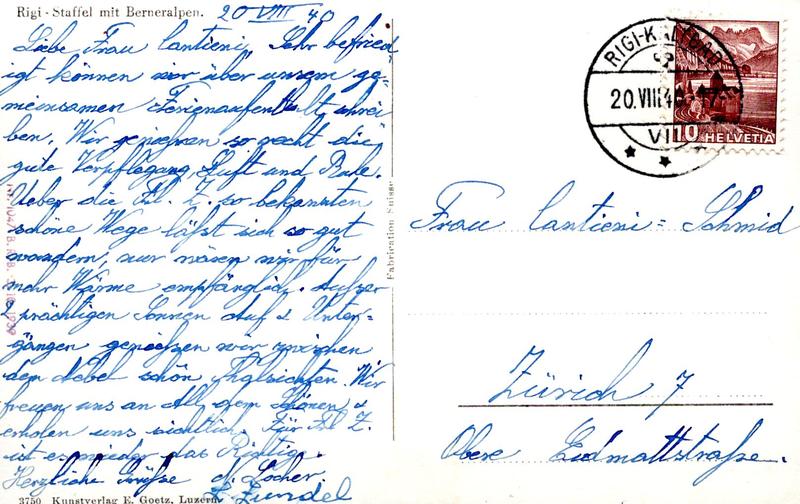 Rigi - Staffel mit Berneralpen.
20 VIII 40
Liebe Frau Cantieni, Sehr befried
igt können wir über unsern ge-
meinsamen Ferienaufenthalt schrei
ben. Wir geniessen so recht die
gute Verpflegung, Luft und Ruhe.
Ueber die Frl. Z. so bekannten
schöne Wege läßt sich so gut
wandern, nur wären wir für
mehr Wärme empfänglich. Außer
prächtigen Sonnen Auf & Unter-
gängen geniessen wir zwischen
dem Nebel schön Fernsichten. Wir
freuen uns an All dem Schönen &
erholen uns sichtlich. Für Frl Z.
ist es wieder das Richtig.
Herzliche Grüße
Locher.
Zundel
3750 Kunstverlag E. Goetz, Luzern
Fabrication Suisse
RIGI-KALTBAD
20.VIII.40
VII
10 HELVETIA
Frau Cantieni = Schmid
Zürich 7
Obere Eidmattstraße.